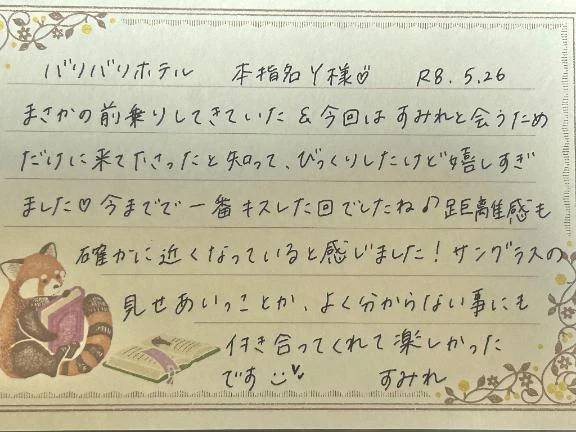 バリバリホテル 本指名Y様♡ R8.5.26
まさかの前乗りしてきていた&今回はすみれと会うため
だけに来て下さったと知って、びっくりしたけど嬉しすぎ
ました♡今までで一番キスした回でしたね♪距離感も
確かに近くなっていると感じました!サングラスの
見せあいっことか、よく分からない事にも
付き合ってくれて楽しかった
です すみれ